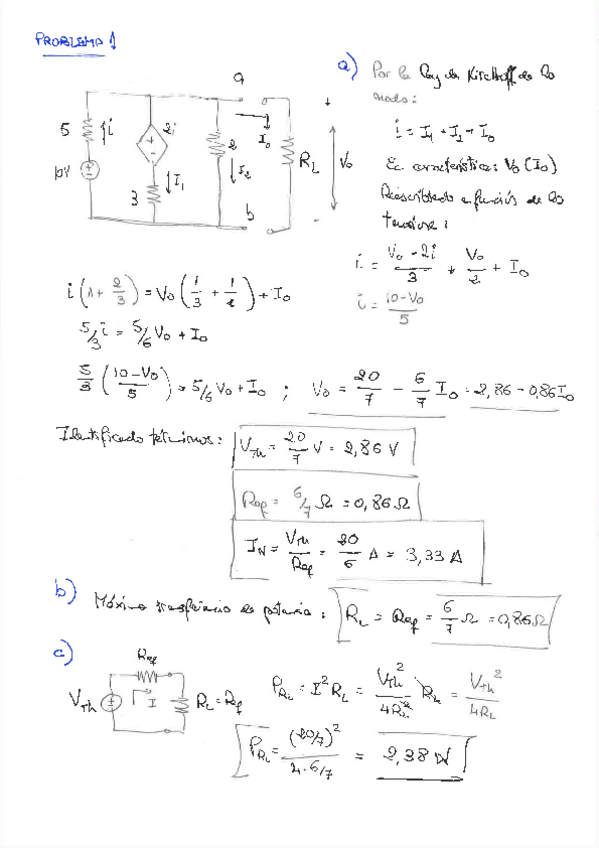 PROBLEMA 1
a) Por la ley de Kirchhoff de los
nodos:
i = I1 + I2 + Io
Ec. característica: Vo (Io)
Reescribiendo en función de las
tensiones:
i = (Vo - 2i)/3 + Vo/2 + Io
i = (10 - Vo)/5
a
5
i
2i
2
Io
+
10V
3
I1
I2
RL
Vo
b
-
i (1 + 2/3) = Vo (1/3 + 1/2) + Io
5/3 i = 5/6 Vo + Io
5/3 ((10 - Vo)/5) = 5/6 Vo + Io ; Vo = 20/7 - 6/7 Io = 2,86 - 0,86 Io
Identificando términos: VTh = 20/7 V = 2,86 V
Req = 6/7 Ω = 0,86 Ω
IN = VTh/Req = 20/6 A = 3,33 A
b) Máxima transferencia de potencia: RL = Req = 6/7 Ω = 0,86 Ω
c)
Req
VTh
I
RL = Req
PRL = I² RL = VTh²/4RL² RL = VTh²/4RL
PRL = (20/7)²/4·6/7 = 2,38 W